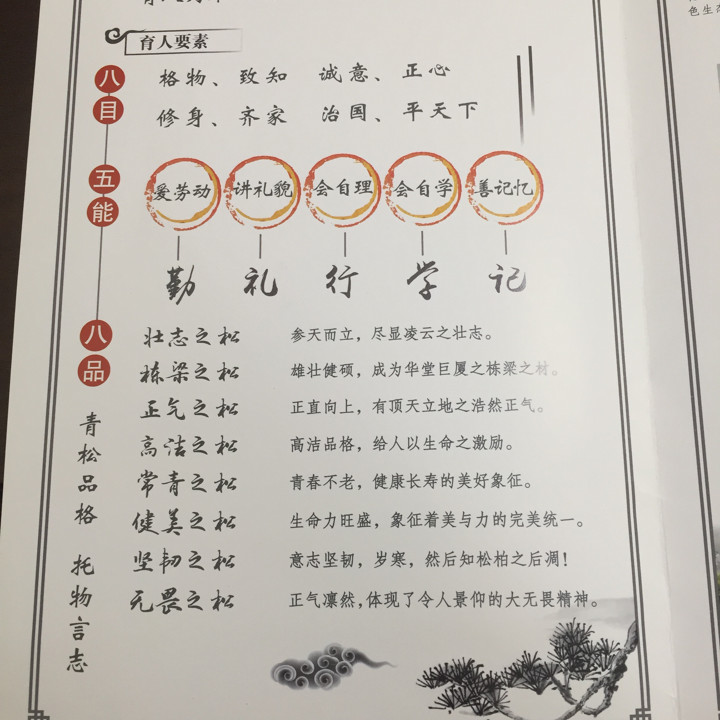 育人要素
八目
格物、致知 诚意、正心
修身、齐家 治国、平天下
五能
爱劳动 讲礼貌 会自理 会自学 善记忆
勤 礼 行 学 记
八品
青松品格 托物言志
壮志之松 参天而立，尽显凌云之壮志。
栋梁之松 雄壮健硕，成为华堂巨厦之栋梁之材。
正气之松 正直向上，有顶天立地之浩然正气。
高洁之松 高洁品格，给人以生命之激励。
常青之松 青春不老，健康长寿的美好象征。
健美之松 生命力旺盛，象征着美与力的完美统一。
坚韧之松 意志坚韧，岁寒，然后知松柏之后凋！
无畏之松 正气凛然，体现了令人景仰的大无畏精神。
色生